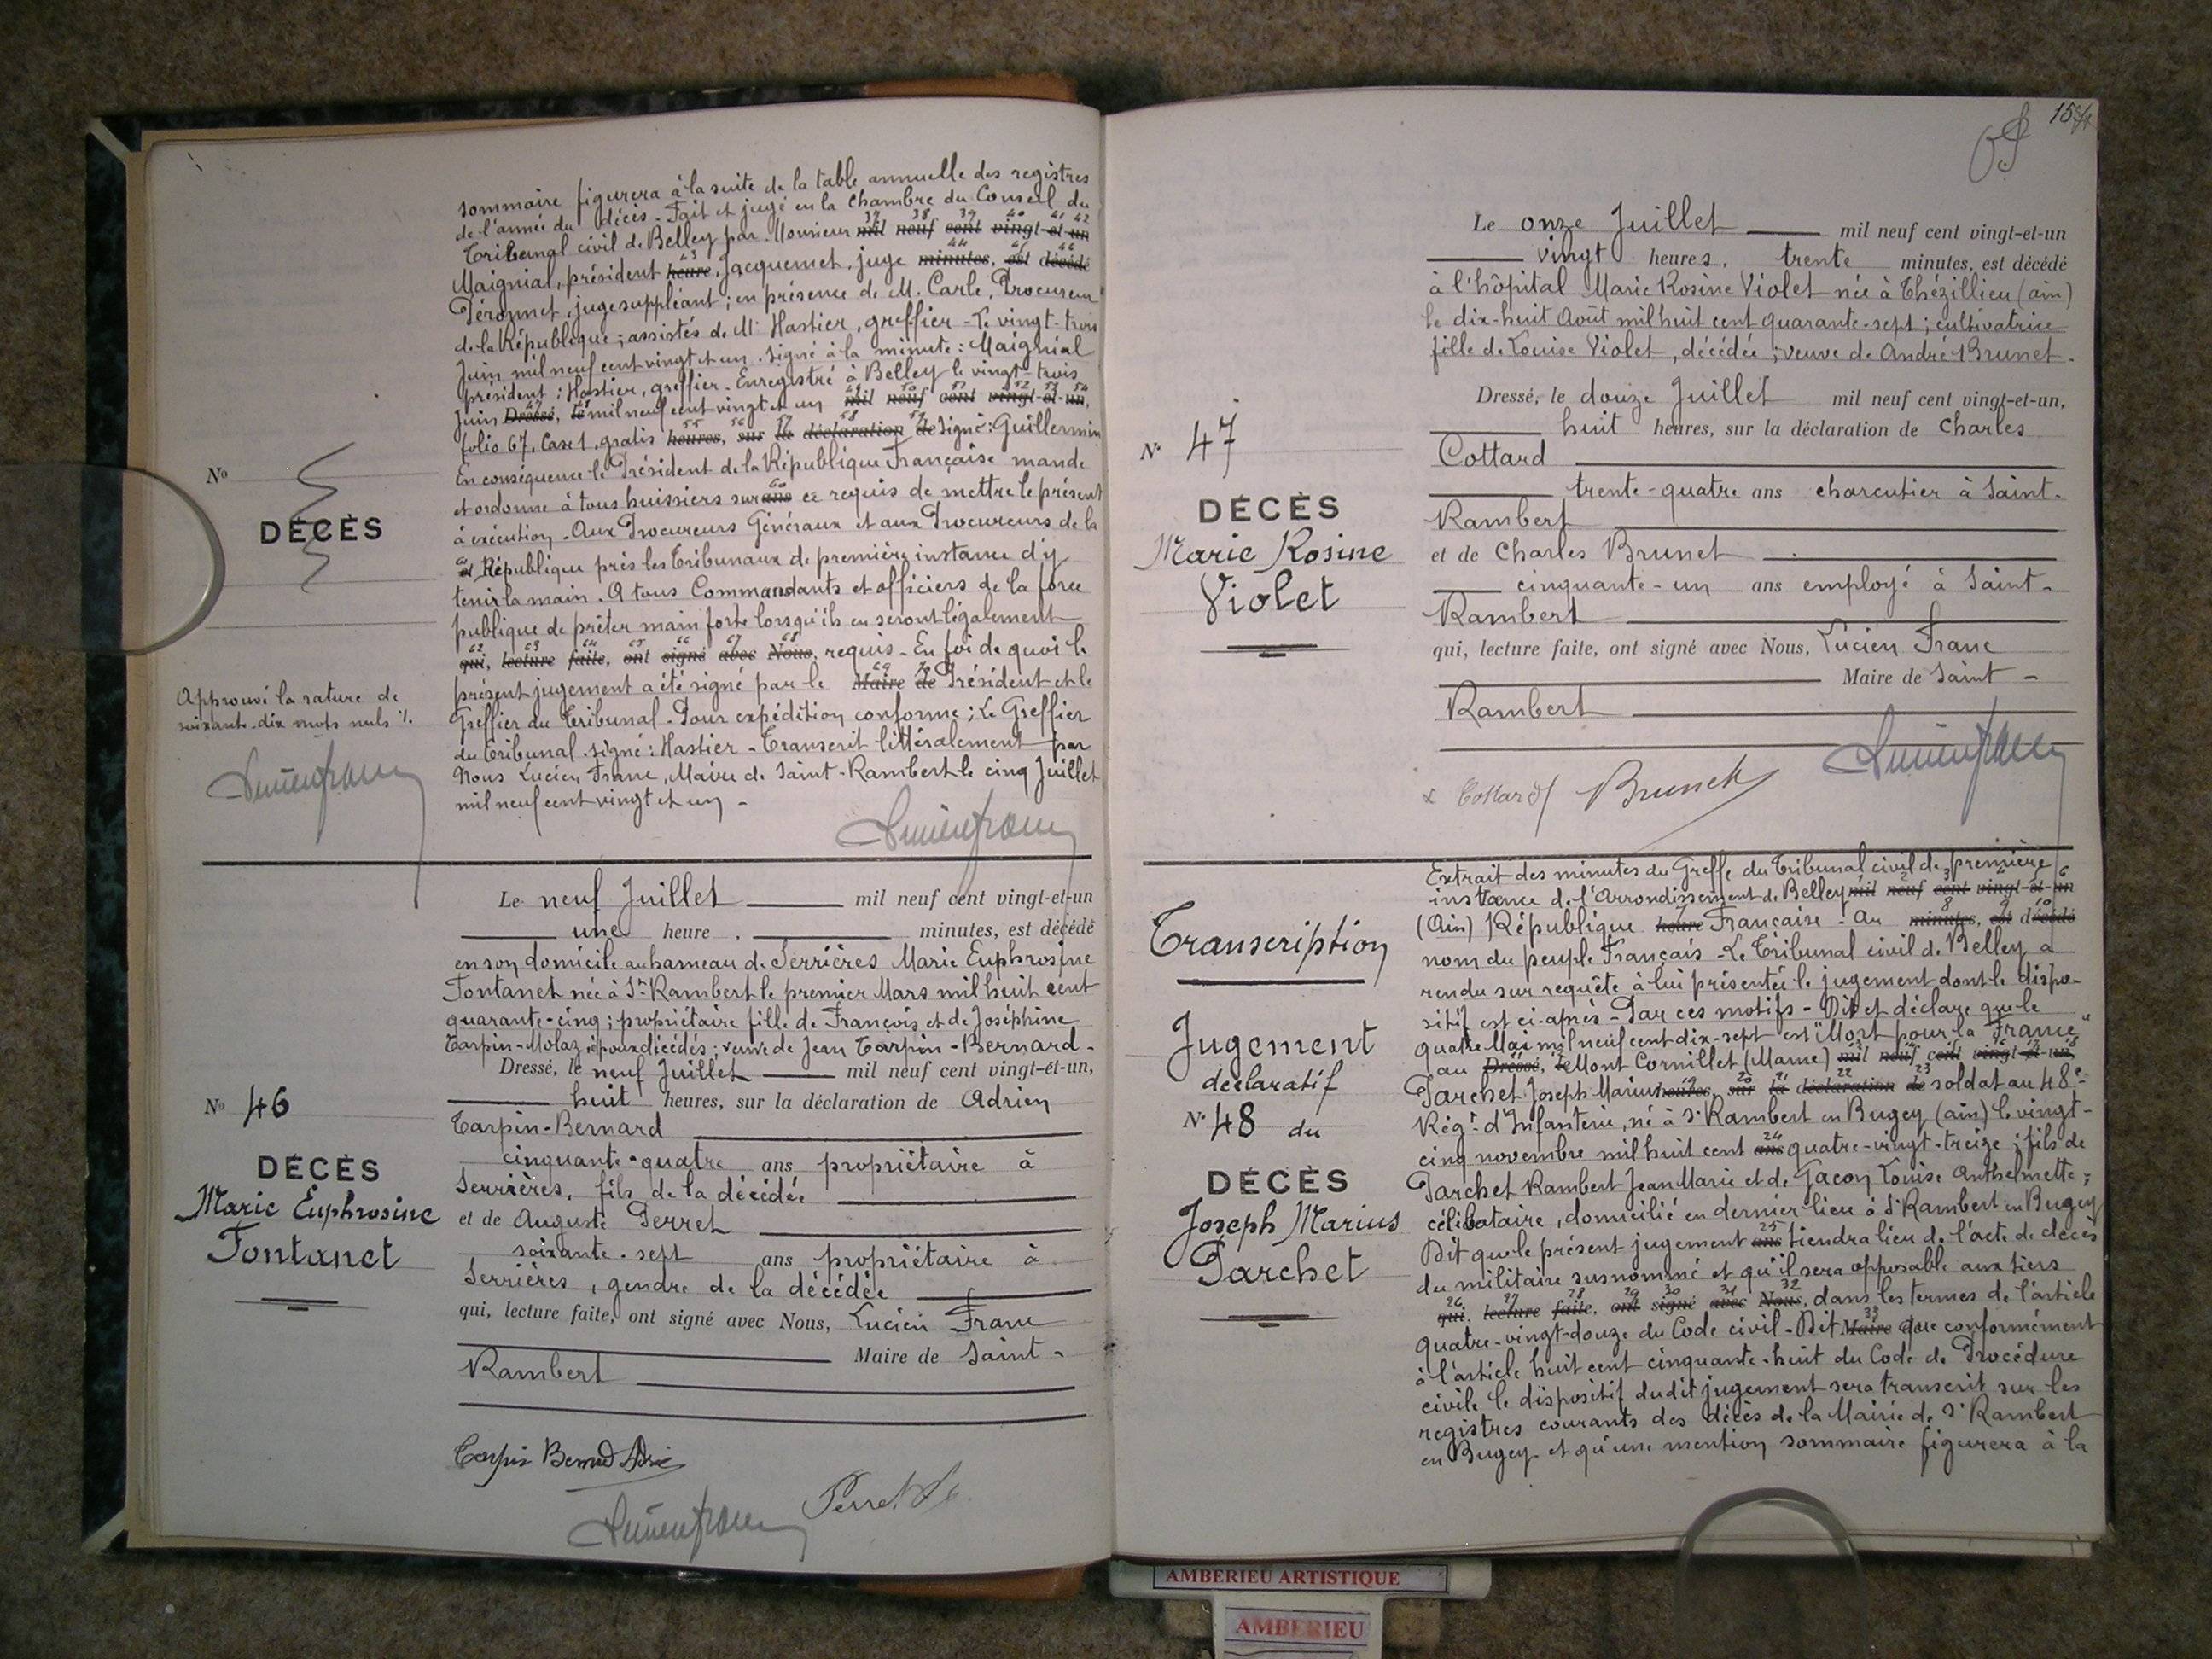 sommaire figurera à la suite de la table annuelle des registres
de l'année du décès - Fait et jugé en la Chambre du Conseil du
37 38 39 40 41 42
Tribunal civil de Belley par Monsieur mil neuf cent vingt-et-un
43 44 45 46
Maignial, président heure, Jacquemet, juge minutes, est décédé
Péronnet, juge suppléant; en présence de M. Carle, Procureur
de la République; assistés de Mr Hastier, greffier - Le vingt-trois
Juin mil neuf cent vingt et un. Signé à la minute: Maignial
président: Hastier, greffier. Enregistré à Belley le vingt-trois
47 48 49 50 51 52 53 54
Juin Dressé, le mil neuf cent vingt et un mil neuf cent vingt-et-un,
55 56 57 58 59
folio 67, Case 1, gratis heures, sur la déclaration de Signé: Guillermin
En conséquence le Président de la République Française mande
60
et ordonne à tous huissiers sur ans ce requis de mettre le présent
à exécution - Aux Procureurs Généraux et aux Procureurs de la
61
et République près les Tribunaux de première instance d'y
tenir la main. A tous Commandants et officiers de la force
publique de prêter main forte lorsqu'ils en seront légalement
62 63 64 65 66 67 68
qui, lecture faite, ont signé avec Nous, requis - En foi de quoi le
69 70
présent jugement a été signé par le Maire de Président et le
Greffier du Tribunal - Pour expédition conforme; Le Greffier
du Tribunal. signé: Hastier - Transcrit littéralement par
Nous Lucien Franc, Maire de Saint-Rambert le cinq Juillet
mil neuf cent vingt et un -
No
DÉCÈS
Approuvé la rature de
soixante-dix mots nuls %.
Lucien Franc
Lucien Franc
Le neuf Juillet mil neuf cent vingt-et-un
une heure, minutes, est décédé
en son domicile au hameau de Serrières Marie Euphrosine
Fontanet née à St Rambert le premier Mars mil huit cent
quarante-cinq; propriétaire fille de François et de Joséphine
Tarpin-Molaz, époux décédés; veuve de Jean Tarpin-Bernard -
Dressé, le neuf Juillet mil neuf cent vingt-et-un,
huit heures, sur la déclaration de Adrien
Tarpin-Bernard
cinquante-quatre ans propriétaire à
Serrières, fils de la décédée
et de Auguste Perret
soixante-sept ans propriétaire à
Serrières, gendre de la décédée
qui, lecture faite, ont signé avec Nous, Lucien Franc
Maire de Saint-
Rambert
No 46
DÉCÈS
Marie Euphrosine
Fontanet
Tarpin Bernard Adrien
Lucien Franc
Perret
Le onze Juillet mil neuf cent vingt-et-un
vingt heures, trente minutes, est décédé
à l'hôpital Marie Rosine Violet née à Thézillieu (ain)
le dix-huit Août mil huit cent quarante-sept; cultivatrice
fille de Louise Violet, décédée; veuve de André Brunet.
Dressé, le douze Juillet mil neuf cent vingt-et-un,
huit heures, sur la déclaration de Charles
Cottard
trente-quatre ans charcutier à Saint-
Rambert
et de Charles Brunet
cinquante-un ans employé à Saint-
Rambert
qui, lecture faite, ont signé avec Nous, Lucien Franc
Maire de Saint-
Rambert
No 47
DÉCÈS
Marie Rosine
Violet
Cottard Brunet
Lucien Franc
Extrait des minutes du Greffe du Tribunal civil de première
instance de l'Arrondissement de Belley mil neuf cent vingt-et-un
7 8 9 10
(Ain) République heure Française - Au minutes, est décédé
nom du peuple Français - Le Tribunal civil de Belley a
rendu sur requête à lui présentée le jugement dont le dispo-
sitif est ci-après - Par ces motifs - Dit et déclare que le
quatre Mai mil neuf cent dix-sept est "Mort pour la France"
au Dressé, le Mont Cornillet (Marne) mil neuf cent vingt-et-un,
Parchet Joseph Marius heures, sur la déclaration de soldat au 48e
Régt d'Infanterie, né à St Rambert en Bugey (ain) le vingt-
24
cinq novembre mil huit cent ans quatre-vingt-treize; fils de
Parchet Rambert Jean Marie et de Gacon Louise Anthelmette;
célibataire, domicilié en dernier lieu à St Rambert en Bugey
25
Dit que le présent jugement ans tiendra lieu de l'acte de décès
du militaire susnommé et qu'il sera opposable aux tiers
26 27 28 29 30 31 32
qui, lecture faite, ont signé avec Nous, dans les termes de l'article
33
quatre-vingt-douze du Code civil - Dit Maire que conformément
à l'article huit cent cinquante-huit du Code de Procédure
civile le dispositif dudit jugement sera transcrit sur les
registres courants des décès de la Mairie de St Rambert
en Bugey et qu'une mention sommaire figurera à la
Transcription
Jugement
déclaratif
No 48 du
DÉCÈS
Joseph Marius
Parchet
AMBERIEU ARTISTIQUE
AMBERIEU